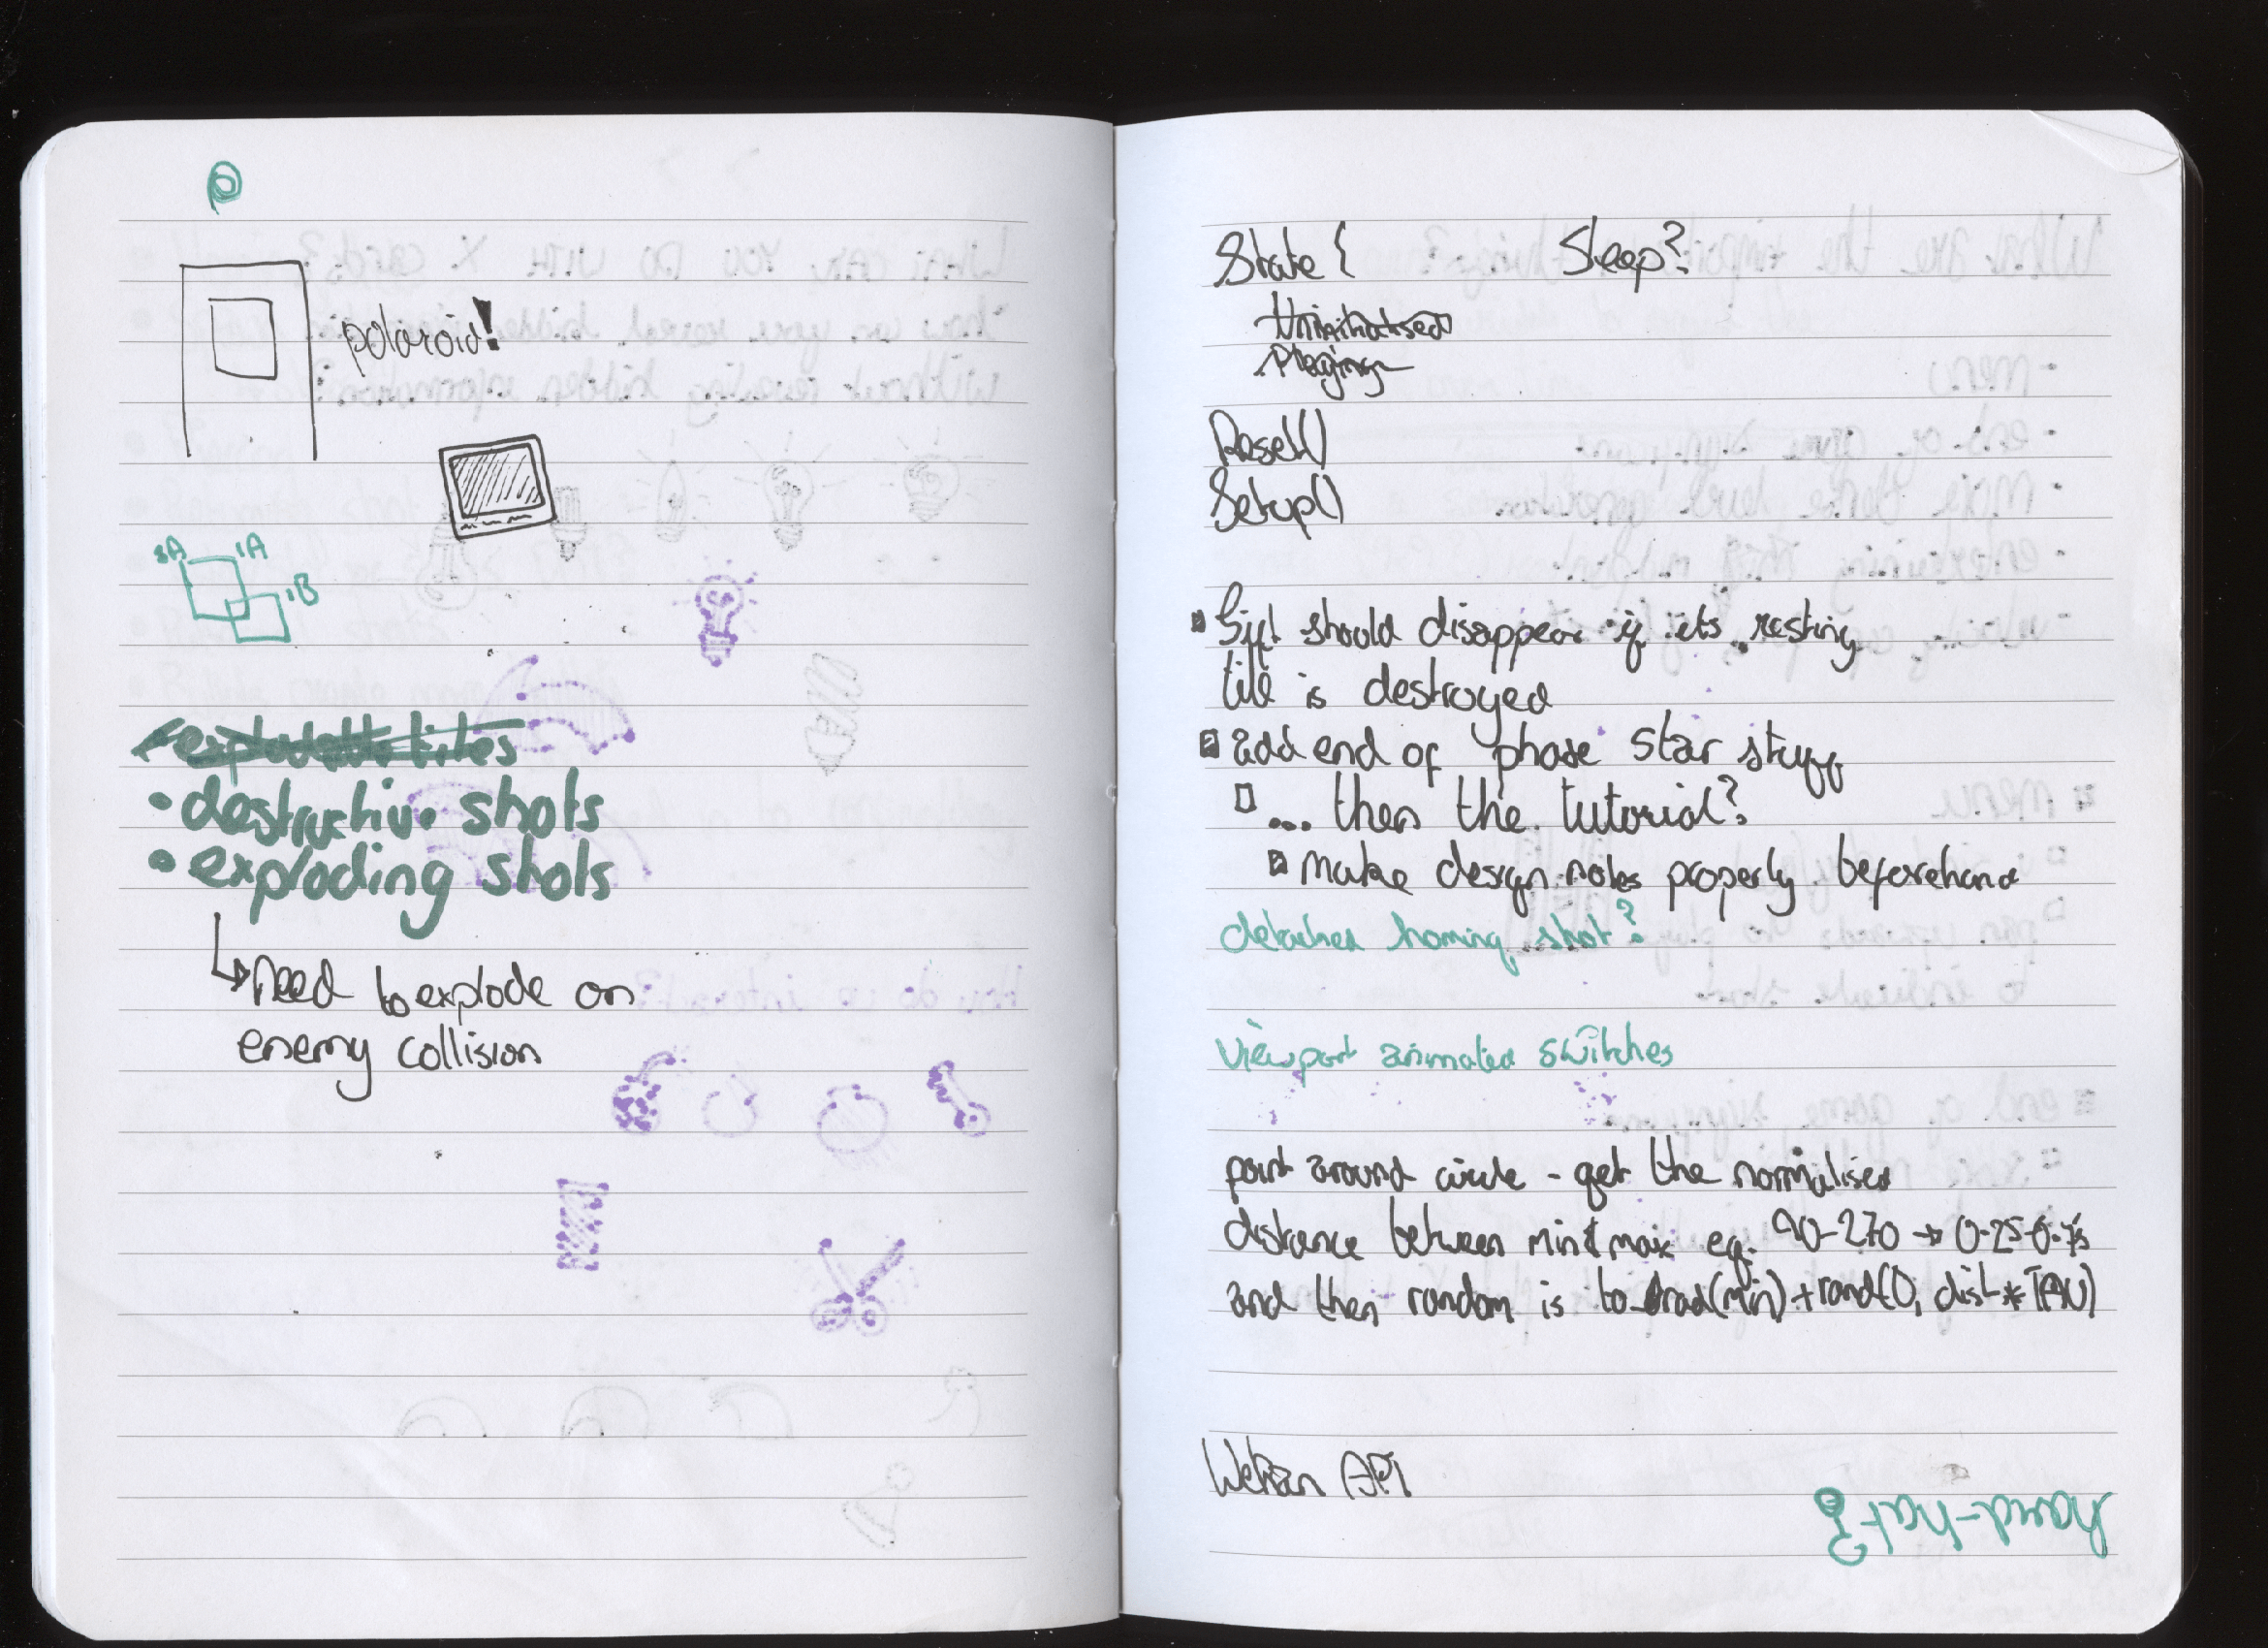 polaroid!
2A
1A
1B
destructive shots
exploding shots
need to explode on
enemy collision
State {
Sleep?
Uninitialised
Playing
Reset()
Setup()
Gift should disappear if its resting
tile is destroyed
add end of phase star stuff
... then the tutorial?
make design notes properly beforehand
detached homing shot?
viewport animated switches
point around circle - get the normalised
distance between min & max eg. 90-270 → 0.25-0.75
and then random is to_rad(min) + rand(0, dist * TAU)
API
hand-hat?